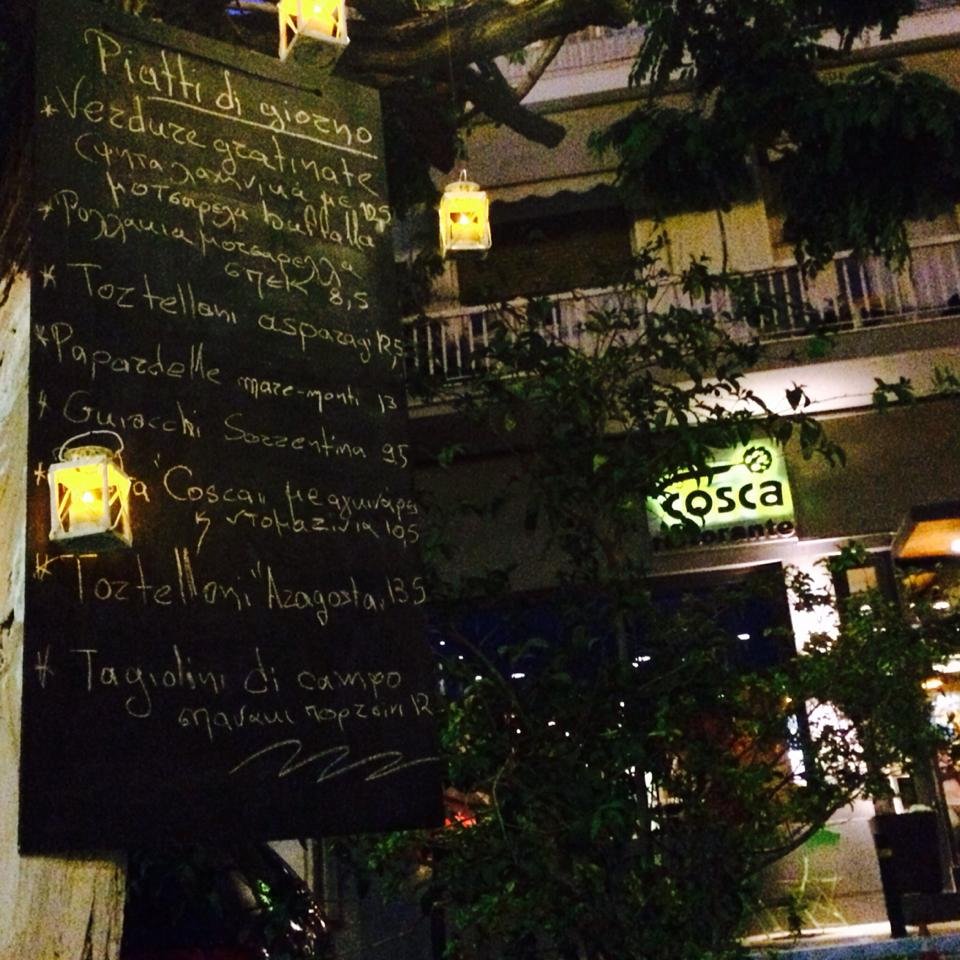 Piatti di giorno
* Verdure gratinate
(ψητα λαχανικα με 12,5
μοτσαρελα buffalla
* Ρολλακια μοτσαρελλα
σπεκ 8,5
* Tortelloni asparagi 12,5
* Papardelle mare-monti 13
* Sorrentina 9,5
* "Cosca" με αγκιναρες
ντοματινια 10,5
* Tortelloni "Aragosta" 13,5
* Tagiolini di campo
σπανακι πορτσινι 12
cosca
ristorante